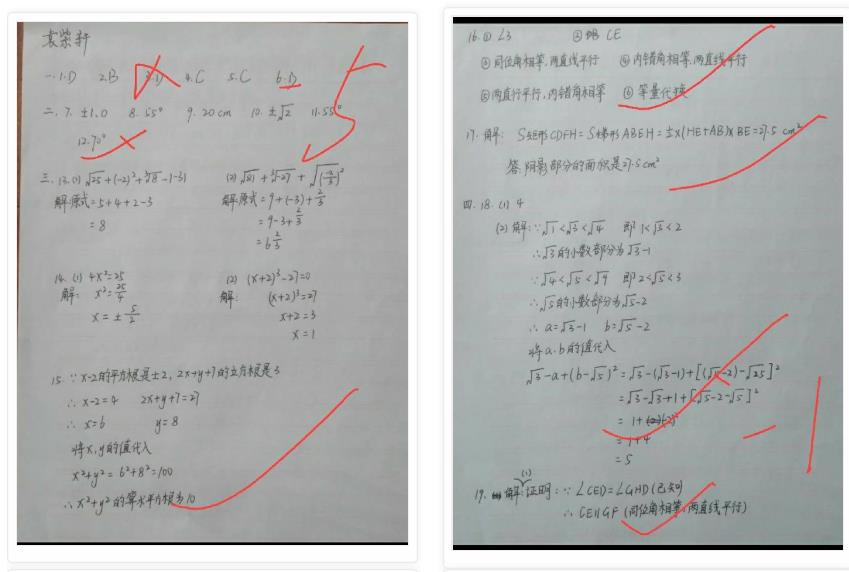 袁紫轩
一.1.D 2.B 3.D 4.C 5.C 6.B
二.7.±1.0 8.55° 9.20cm 10.±√2 11.55°
12.70°
三.13.(1)√25+(-2)²+∛8-|-3|
解:原式=5+4+2-3
=8
(2)√81+∛-27+√(-2/3)²
解:原式=9+(-3)+2/3
=9-3+2/3
=6 2/3
14.(1) 4x²=25
解: x²=25/4
x=±5/2
(2) (x+2)³-27=0
解: (x+2)³=27
x+2=3
x=1
15.∵x-2的平方根是±2, 2x+y+7的立方根是3
∴x-2=4 2x+y+7=27
∴x=6 y=8
将x,y的值代入
x²+y²=6²+8²=100
∴x²+y²的算术平方根为10
5
16.①∠3 ② CE
③同位角相等,两直线平行 ④内错角相等,两直线平行
⑤两直行平行,内错角相等 ⑥等量代换
17.解: S矩形CDFH=S梯形ABEH=½×(HE+AB)×BE=27.5 cm²
答:阴影部分的面积是27.5cm²
四.18.(1) 4
(2)解:∵√1<√3<√4 即1<√3<2
∴√3的小数部分为√3-1
∵√4<√5<√9 即2<√5<3
∴√5的小数部分为√5-2
∴a=√3-1 b=√5-2
将a.b的值代入
√3-a+(b-√5)²=√3-(√3-1)+[(√5-2)-√5]²
=√3-√3+1+[√5-2-√5]²
=1+(-2)²
=1+4
=5
-1
19.(1)证明:∵∠CED=∠GHD(已知)
∴CE∥GF (同位角相等,两直线平行)